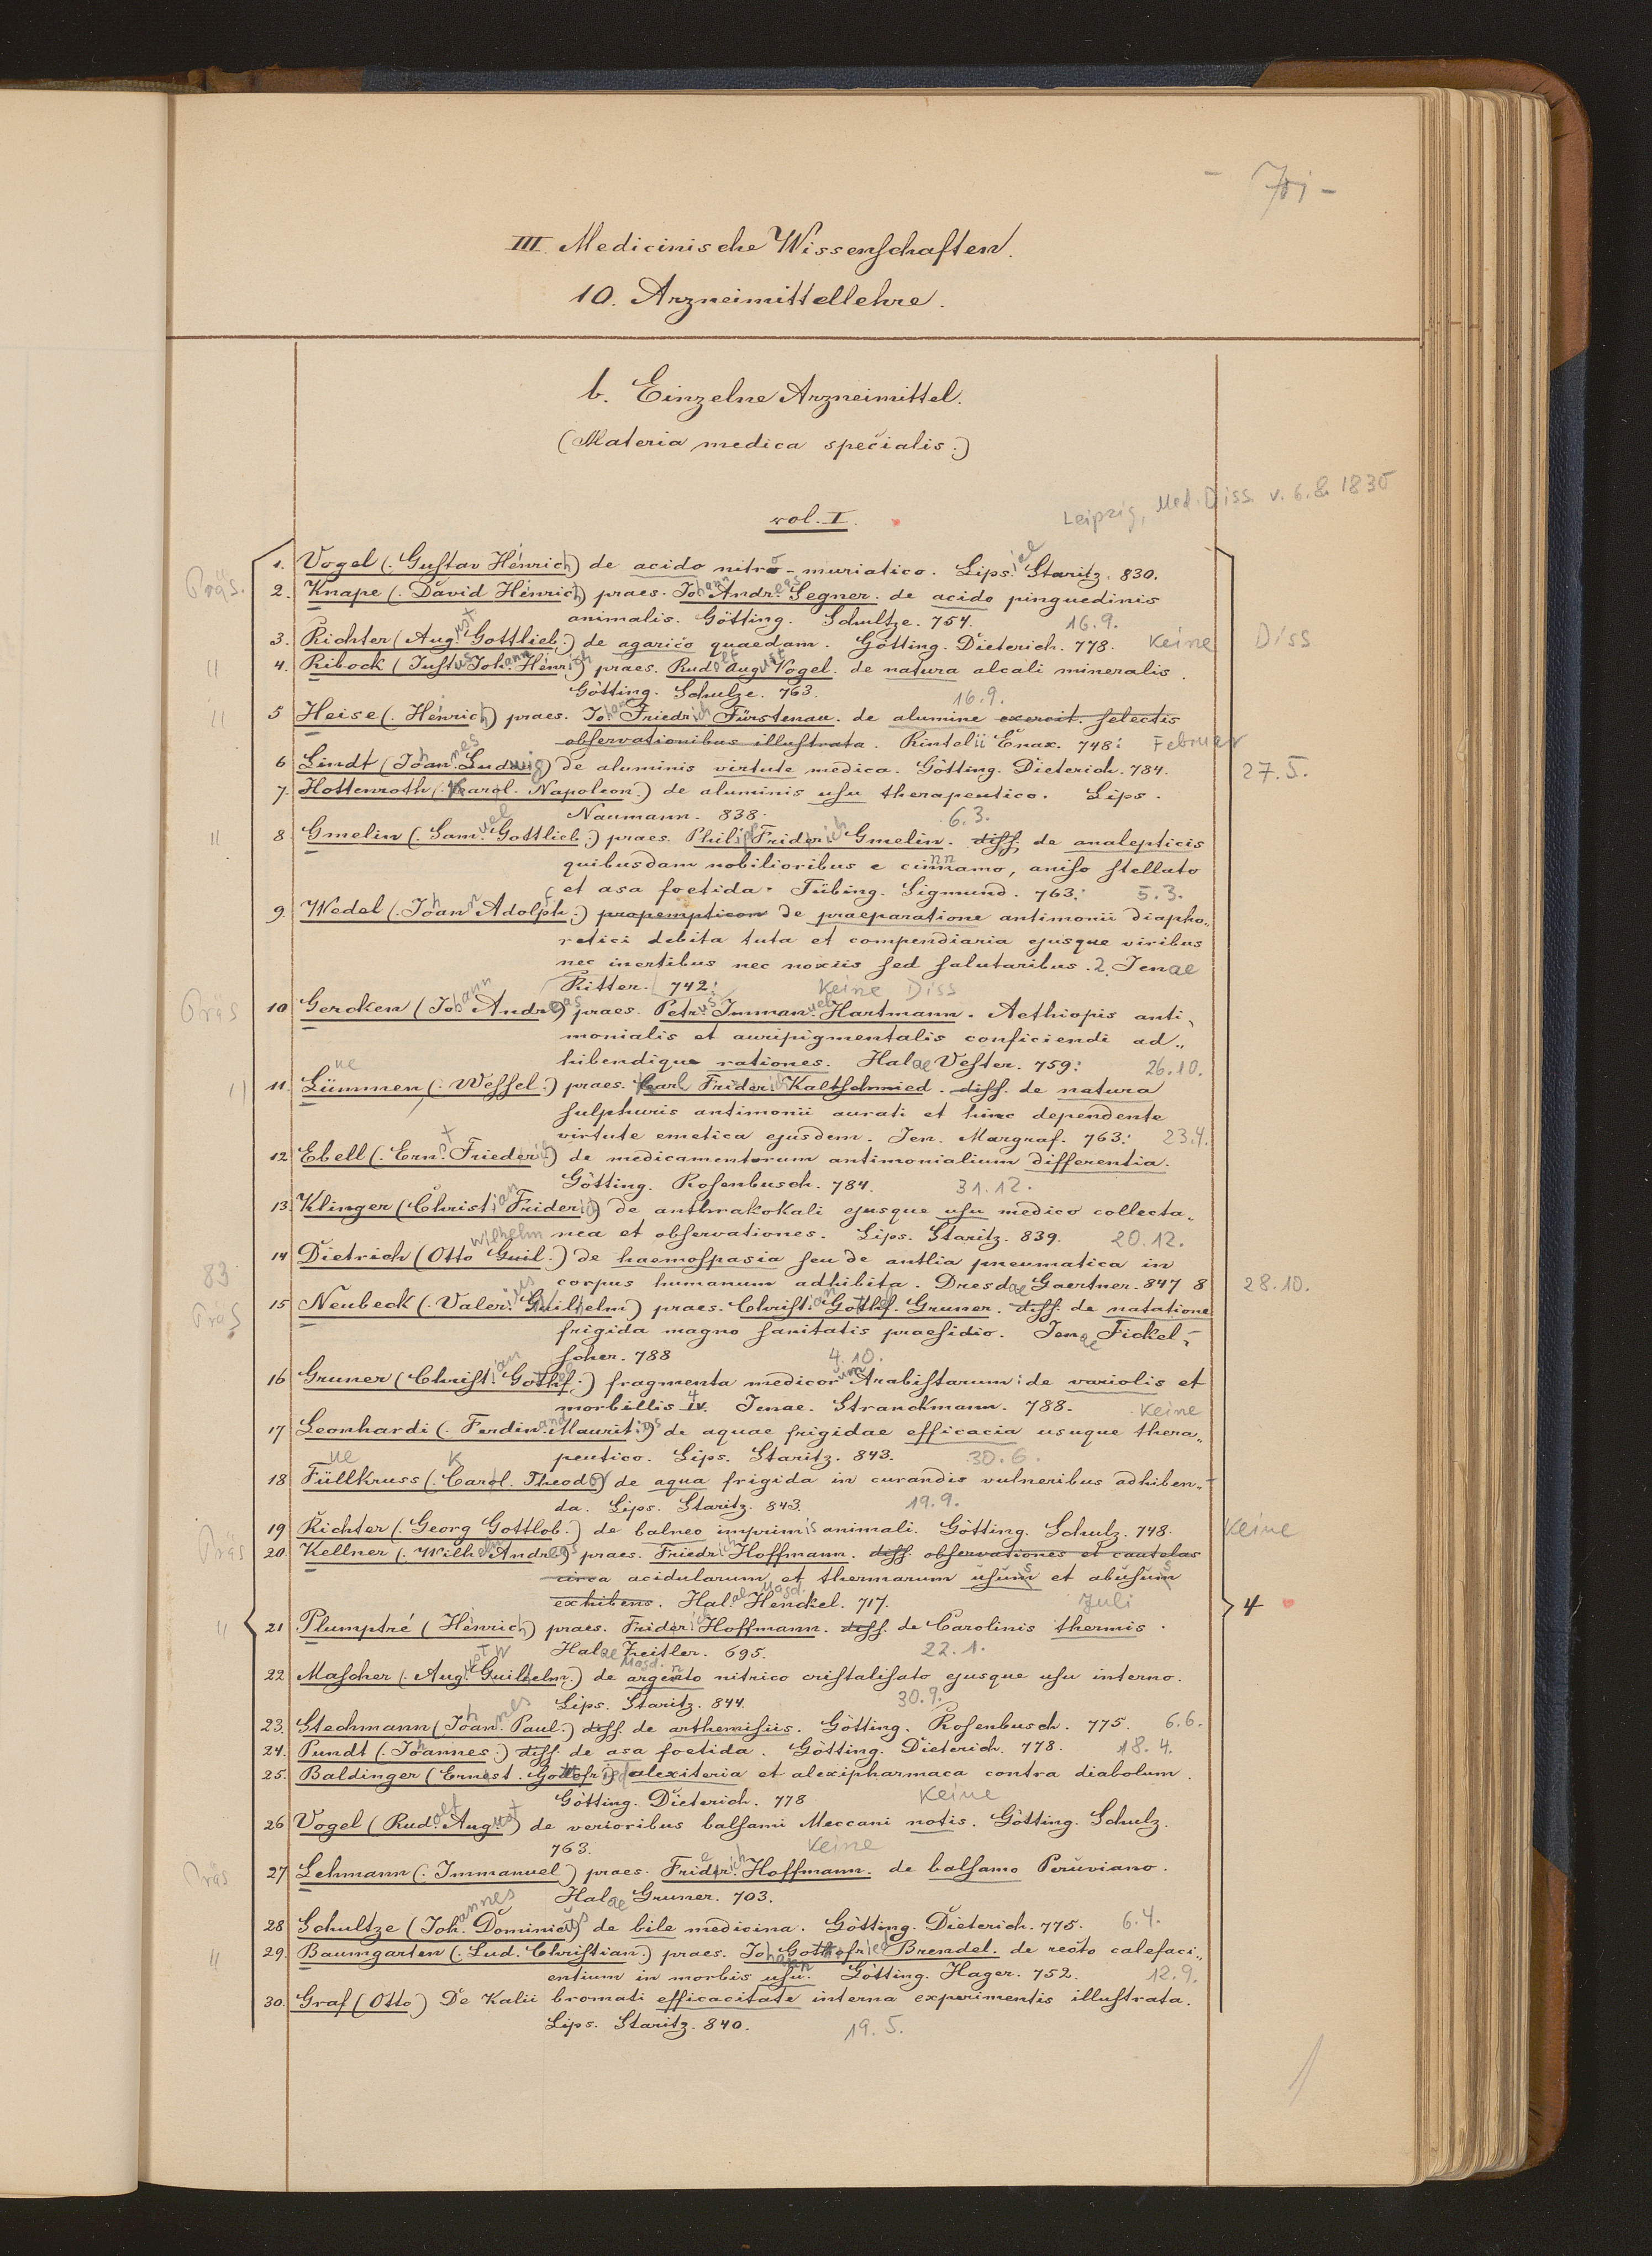 III. Medicinische Wissenschaften.
10. Arzneimittellehre.
b. Einzelne Arzneimittel.
(Materia medica specialis.)
Leipzig, Med. Diss. v. 6.8. 1830
vol. I.
1. Vogel (. Gustav Heinrich) de acido nitro-muriatico. Lipsiae Staritz. 830.
Präs. 2. Knape (. David Heinrich) praes. Johann Andreas Segner. de acido pinguedinis
animalis. Götting. Schultze. 754. 16.9.
3. Richter (August Gottlieb.) de agarico quaedam. Götting. Dieterich. 778. Keine Diss
" 4. Ribock (Justus Johann Heinrich) praes. Rudolf August Vogel. de natura alcali mineralis.
Götting. Schulze. 763. 16.9.
" 5 Heise (. Heinrich) praes. Johann Friedrich Fürstenau. de alumine exercit. selectis
observationibus illustrata. Rintelii Enax. 748: Februar
6 Lindt (Johannes Ludwig) de aluminis virtute medica. Götting. Dieterich. 784. 27.5.
7. Hottenroth (. Karol. Napoleon.) de aluminis usu therapeutico. Lips.
Naumann. 838. 6.3.
" 8 Gmelin (. Samuel Gottlieb.) praes. Philipp Friderich Gmelin. diss. de analepticis
quibusdam nobilioribus e cinnamo, aniso stellato
et asa foetida. Tübing. Sigmund. 763: 5.3.
9. Wedel (. Johann Adolph.) propempticon de praeparatione antimonii diapho„
retici debita tuta et compendiaria ejusque viribus
nec inertibus nec noxiis sed salutaribus. 2. Jenae
Ritter. 742: Keine Diss
Präs 10 Gercken (Johann Andreas) praes. Petrus Immanuel Hartmann. Aethiopis anti„
monialis et auripigmentalis conficiendi ad„
hibendique rationes. Halae Vester. 759: 26.10.
" 11. Lümmen (. Wessel.) praes. Karl Friderich Kaltschmied. diss. de natura
sulphuris antimonii aurati et hinc dependente
virtute emetica ejusdem. Jen. Margraf. 763: 23.4.
12. Ebell (. Ernst Friederich) de medicamentorum antimonialium differentia.
Götting. Rosenbusch. 784. 31.12.
13. Klinger (Christian Friderich) de anthrakokali ejusque usu medico collecta„
nea et observationes. Lips. Staritz. 839. 20.12.
14 Dietrich (Otto Guil. Wilhelm) de haemospasia seu de antlia pneumatica in
83 corpus humanum adhibita. Dresdae Gaertner. 847 8 28.10.
Präs 15 Neubeck (. Valerius Guilielm) praes. Christian Gothf. Gruner. diss. de natatione
frigida magno sanitatis praesidio. Jenae Fickel-
scher. 788 4.10.
16 Gruner (Christian Gothf.) fragmenta medicorum Arabistarum: de variolis et
morbillis IV. 4 Jenae. Stranckmann. 788. Keine
17 Leonhardi (. Ferdinand Mauritius) de aquae frigidae efficacia usuque thera„
peutico. Lips. Staritz. 843. 30.6.
18 Füllkruss (. Carol. Theodor) de aqua frigida in curandis vulneribus adhiben„
da. Lips. Staritz. 843. 19.9.
19 Richter (. Georg Gottlob.) de balneo imprimis animali. Götting. Schulz. 748. Keine
Präs 20. Kellner (. Wilhelm Andreas) praes. Friedrich Hoffmann. diss. observationes et cautelas
circa acidularum et thermarum usum et abusum
exhibens. Halae Magd. Henckel. 717. Juli 4
" 21 Plumptré (Heinrich) praes. Friderich Hoffmann. diss. de Carolinis thermis.
Halae Magd. Zeitler. 695. 22.1.
22 Mascher (. August Guilhelm.) de argento nitrico cristalisato ejusque usu interno.
Lips. Staritz. 844. 30.9.
23. Stechmann (Johannes Paul.) diss. de arthemisiis. Götting. Rosenbusch. 775. 6.6.
24. Pundt (. Johannes.) diss. de asa foetida. Götting. Dieterich. 778. 18.4.
25. Baldinger (Ernest. Gottfried) alexiteria et alexipharmaca contra diabolum.
Götting. Dieterich. 778 Keine
26 Vogel (Rudolf August) de verioribus balsami Meccani notis. Götting. Schulz.
763. Keine
Präs 27 Lehmann (. Immanuel) praes. Friederich Hoffmann. de balsamo Peruviano.
Halae Gruner. 703.
28 Schultze (Johannes Dominicus) de bile medicina. Götting. Dieterich. 775. 6.4.
" 29. Baumgarten (. Lud. Christian.) praes. Johann Gottofried Brendel. de recto calefaci„
entium in morbis usu. Götting. Hager. 752. 12.9.
30. Graf (Otto) De Kalii bromati efficacitate interna experimentis illustrata.
Lips. Staritz. 840. 19.5.
1